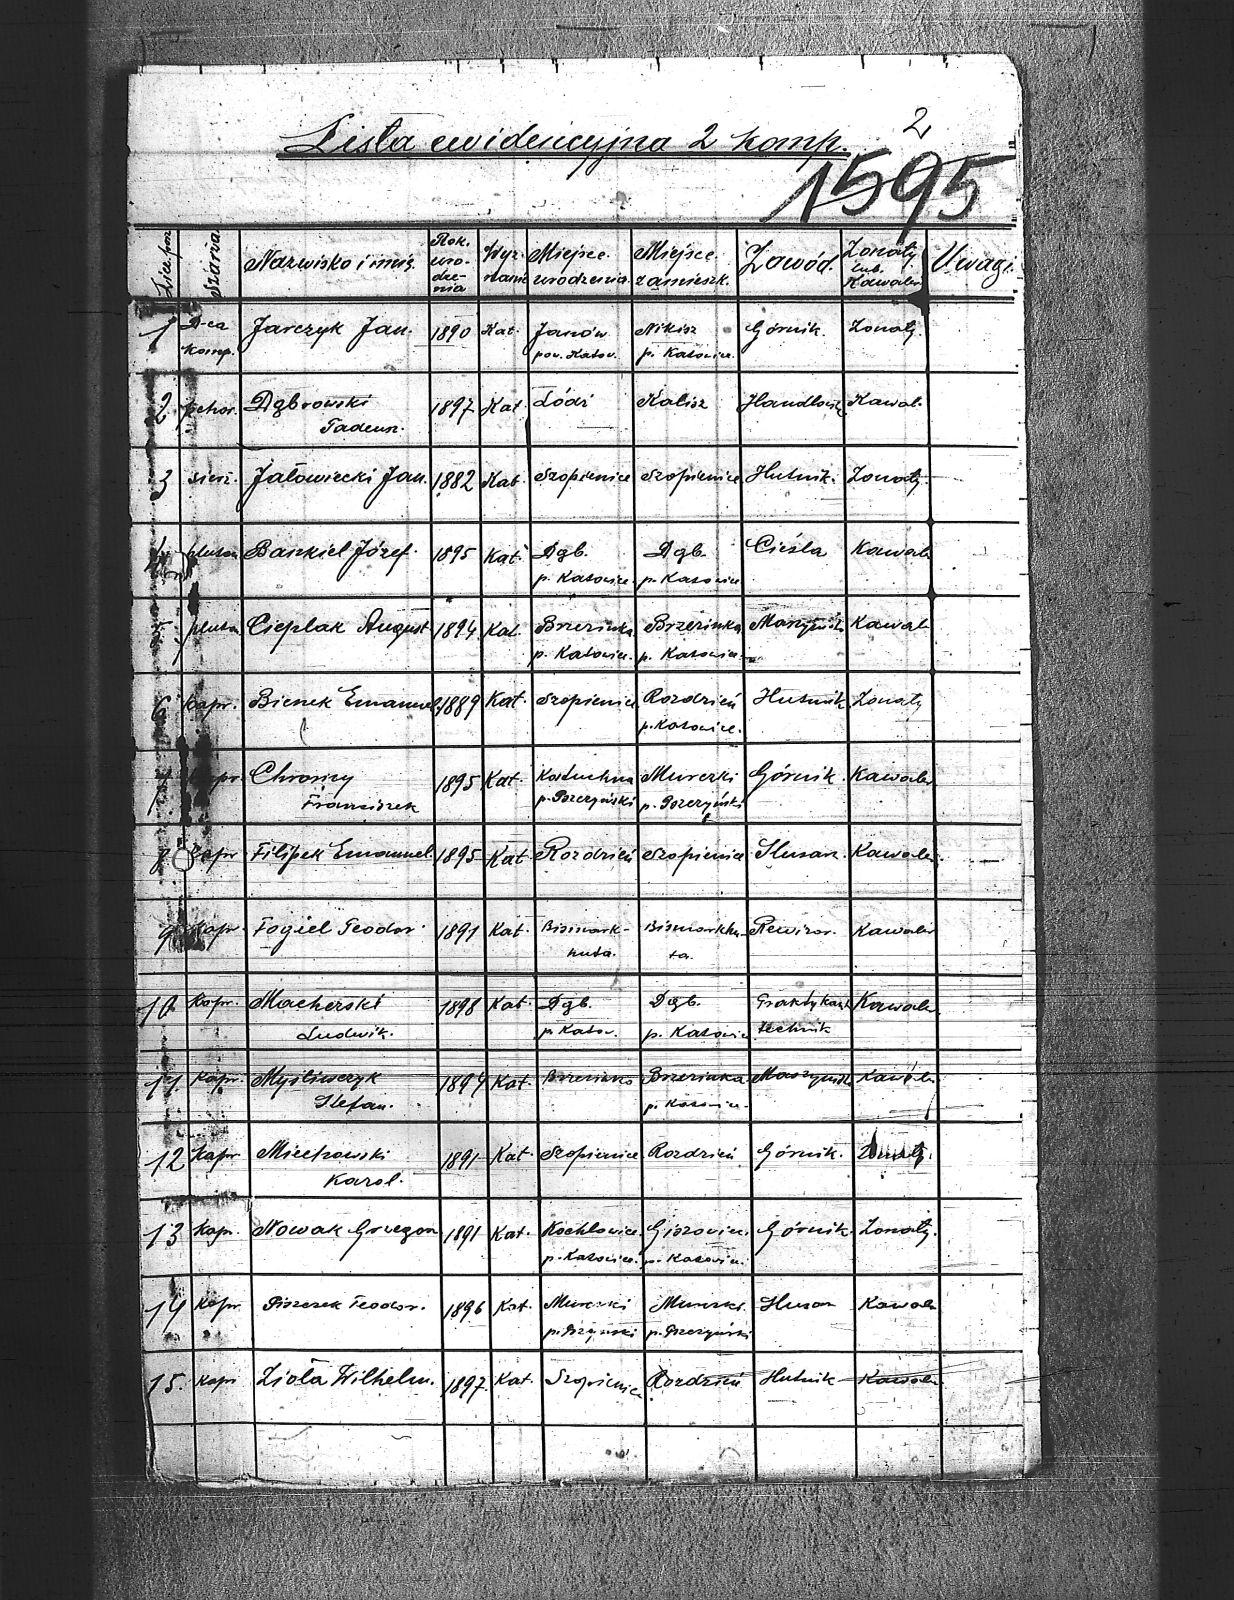 2
Lista ewidencyjna 2 komp.
1595
Szarża Nazwisko i imię. Rok. uro- dze- nia Wyz- nanie Miejsce urodzenia Miejsce zamieszk. Zawód. Żonaty lub Kawaler Uwagi
1 D-ca komp. Jarczyk Jan. 1890 Kat. Janów pow. Katow. Nikisz p. Katowice. Górnik. Żonaty.
2 pchor. Dąbrowski Tadeusz. 1897 Kat. Łódź Kalisz Handlowiec Kawal.
3 sierż. Jałowiecki Jan. 1882 Kat. Szopienice Szopienice Hutnik. Żonaty.
pluton Baskiel Józef. 1895 Kat. Dąb. p. Katowice. Dąb. p. Katowice Cieśla Kawaler
5 pluton Cieplak August 1894 Kat. Brzezinka p. Katowice. Brzezinka p. Katowice. Maszynista Kawal.
6 kapr. Bienek Emanuel 1889 Kat. Szopienice Rozdzień p. Katowice. Hutnik Żonaty
7 kapr. Chrośćzy Franciszek 1895 Kat. Kostuchna p. Pszczyński Murcki p. Pszczyński Górnik Kawaler
8 kapr. Filipek Emanuel 1895 Kat. Rozdzień Szopienice Ślusarz. Kawaler.
9 kapr. Fogiel Teodor. 1891 Kat. Bismark- huta. Bismarkhu- ta. Rewizor. Kawaler
10 kapr. Macherski Ludwik. 1898 Kat. Dąb. p. Katow. Dąb. p. Katowice Praktykant technik Kawaler
11 kapr. Myśliwczyk Stefan. 1894 Kat. Brzezinka Brzezinka p. Katowice. Maszynista Kawaler
12 kapr Miechowski Karol. 1891 Kat. Szopienice Rozdzień Górnik. Żonaty.
13 kapr. Nowak Grzegorz 1891 Kat. Kochłowice. p. Katowice. Giszowiec. p. Katowice. Górnik Żonaty.
14 kapr. Piszczek Teodor. 1896 Kat. Murcki p. Pszczyński Murcki. p. Pszczyński Ślusarz Kawaler
15. kapr Zioła Wilhelm. 1897. Kat. Szopienice Rozdzień Hutnik Kawaler